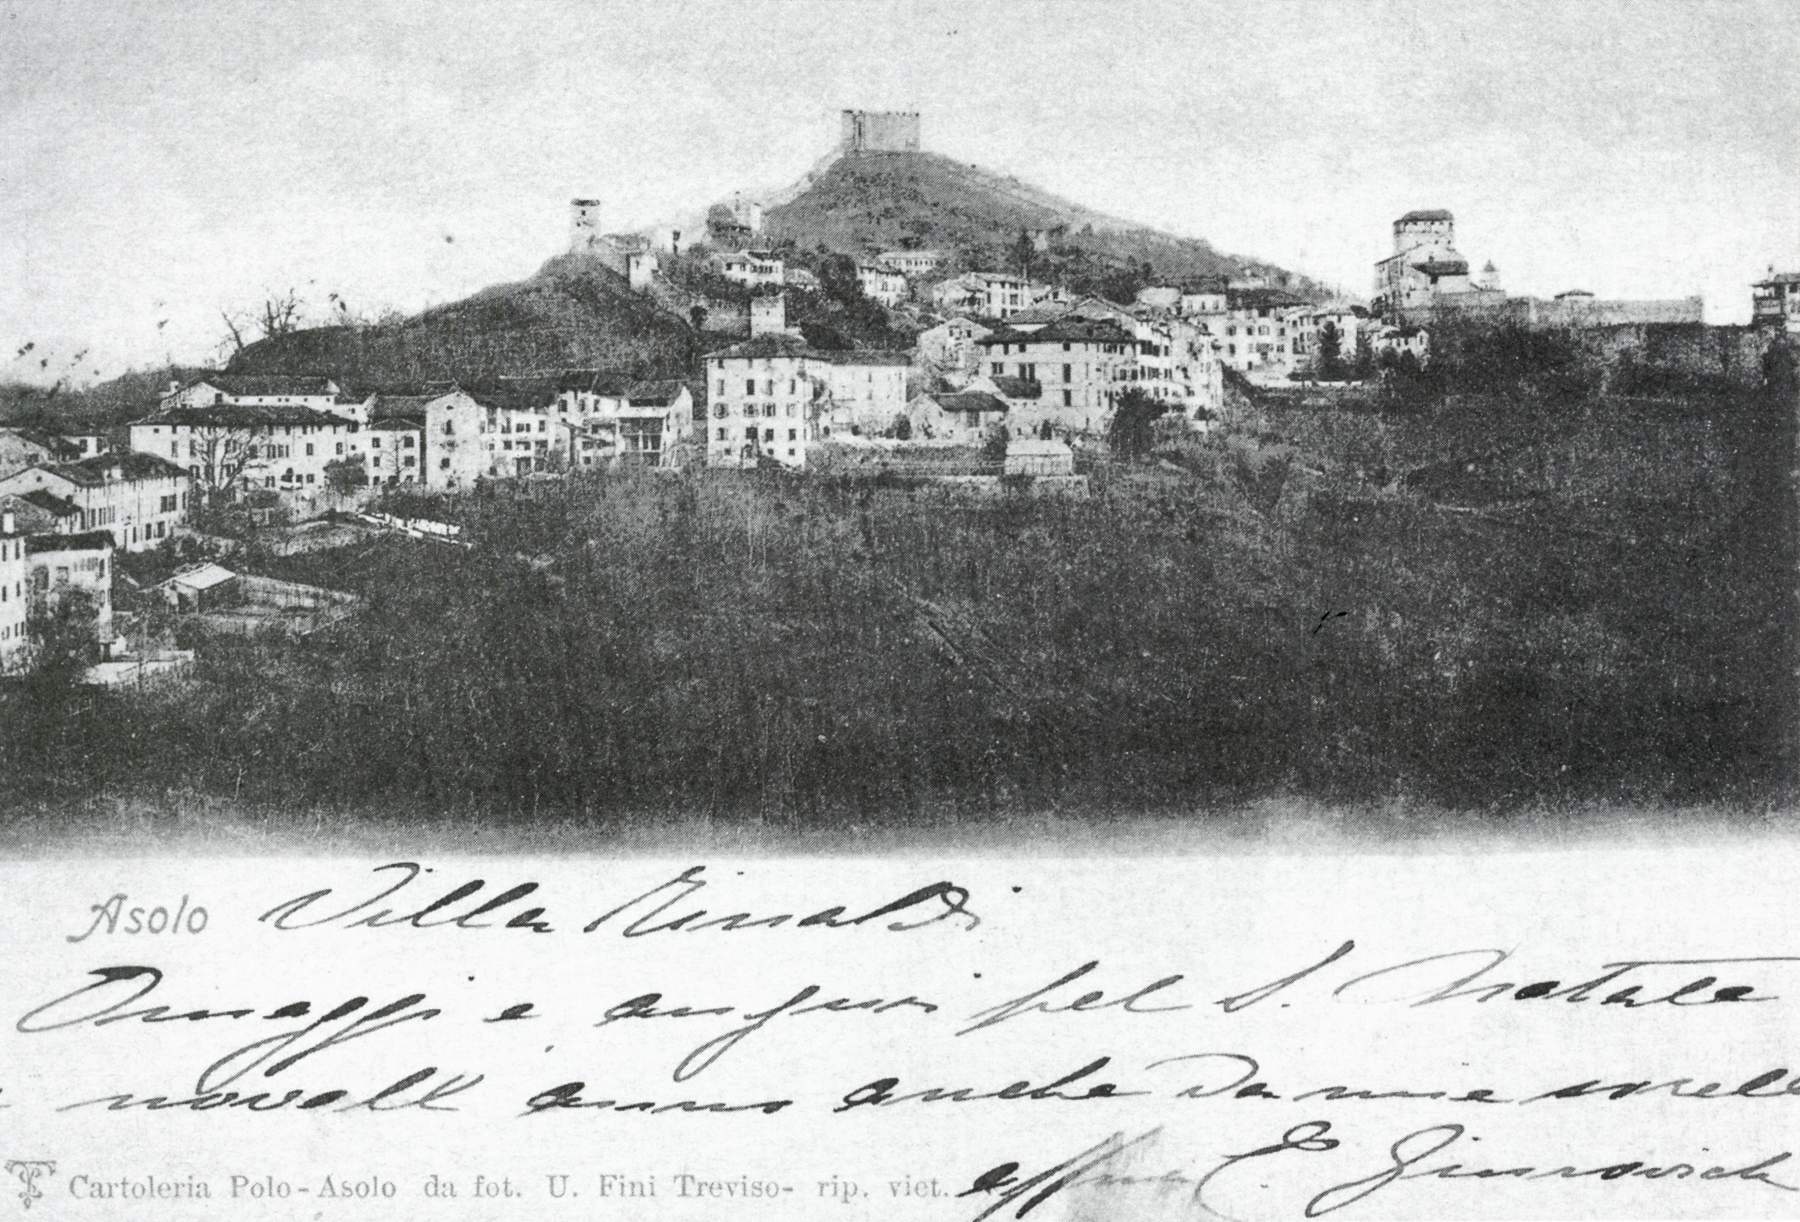 Asolo Villa Rinaldi
Omaggi e auguri pel S. Natale
novell' anno anche da mie sorelle
aff.ma E.
Cartoleria Polo-Asolo da fot. U. Fini Treviso- rip. viet.